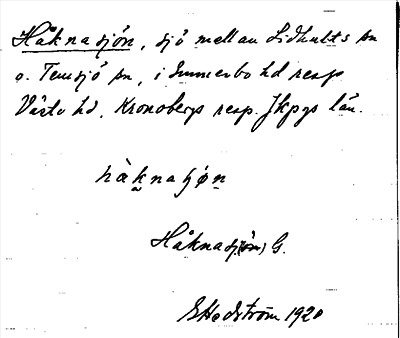 Håknasjön, sjö mellan Lidhults sn
o. Femsjö sn, i Sunnerbo hd resp
Västbo hd, Kronobergs resp. Jkpgs län.
hȧḵnaʃøn
Håknasj(ön) G.
EHedström 1920